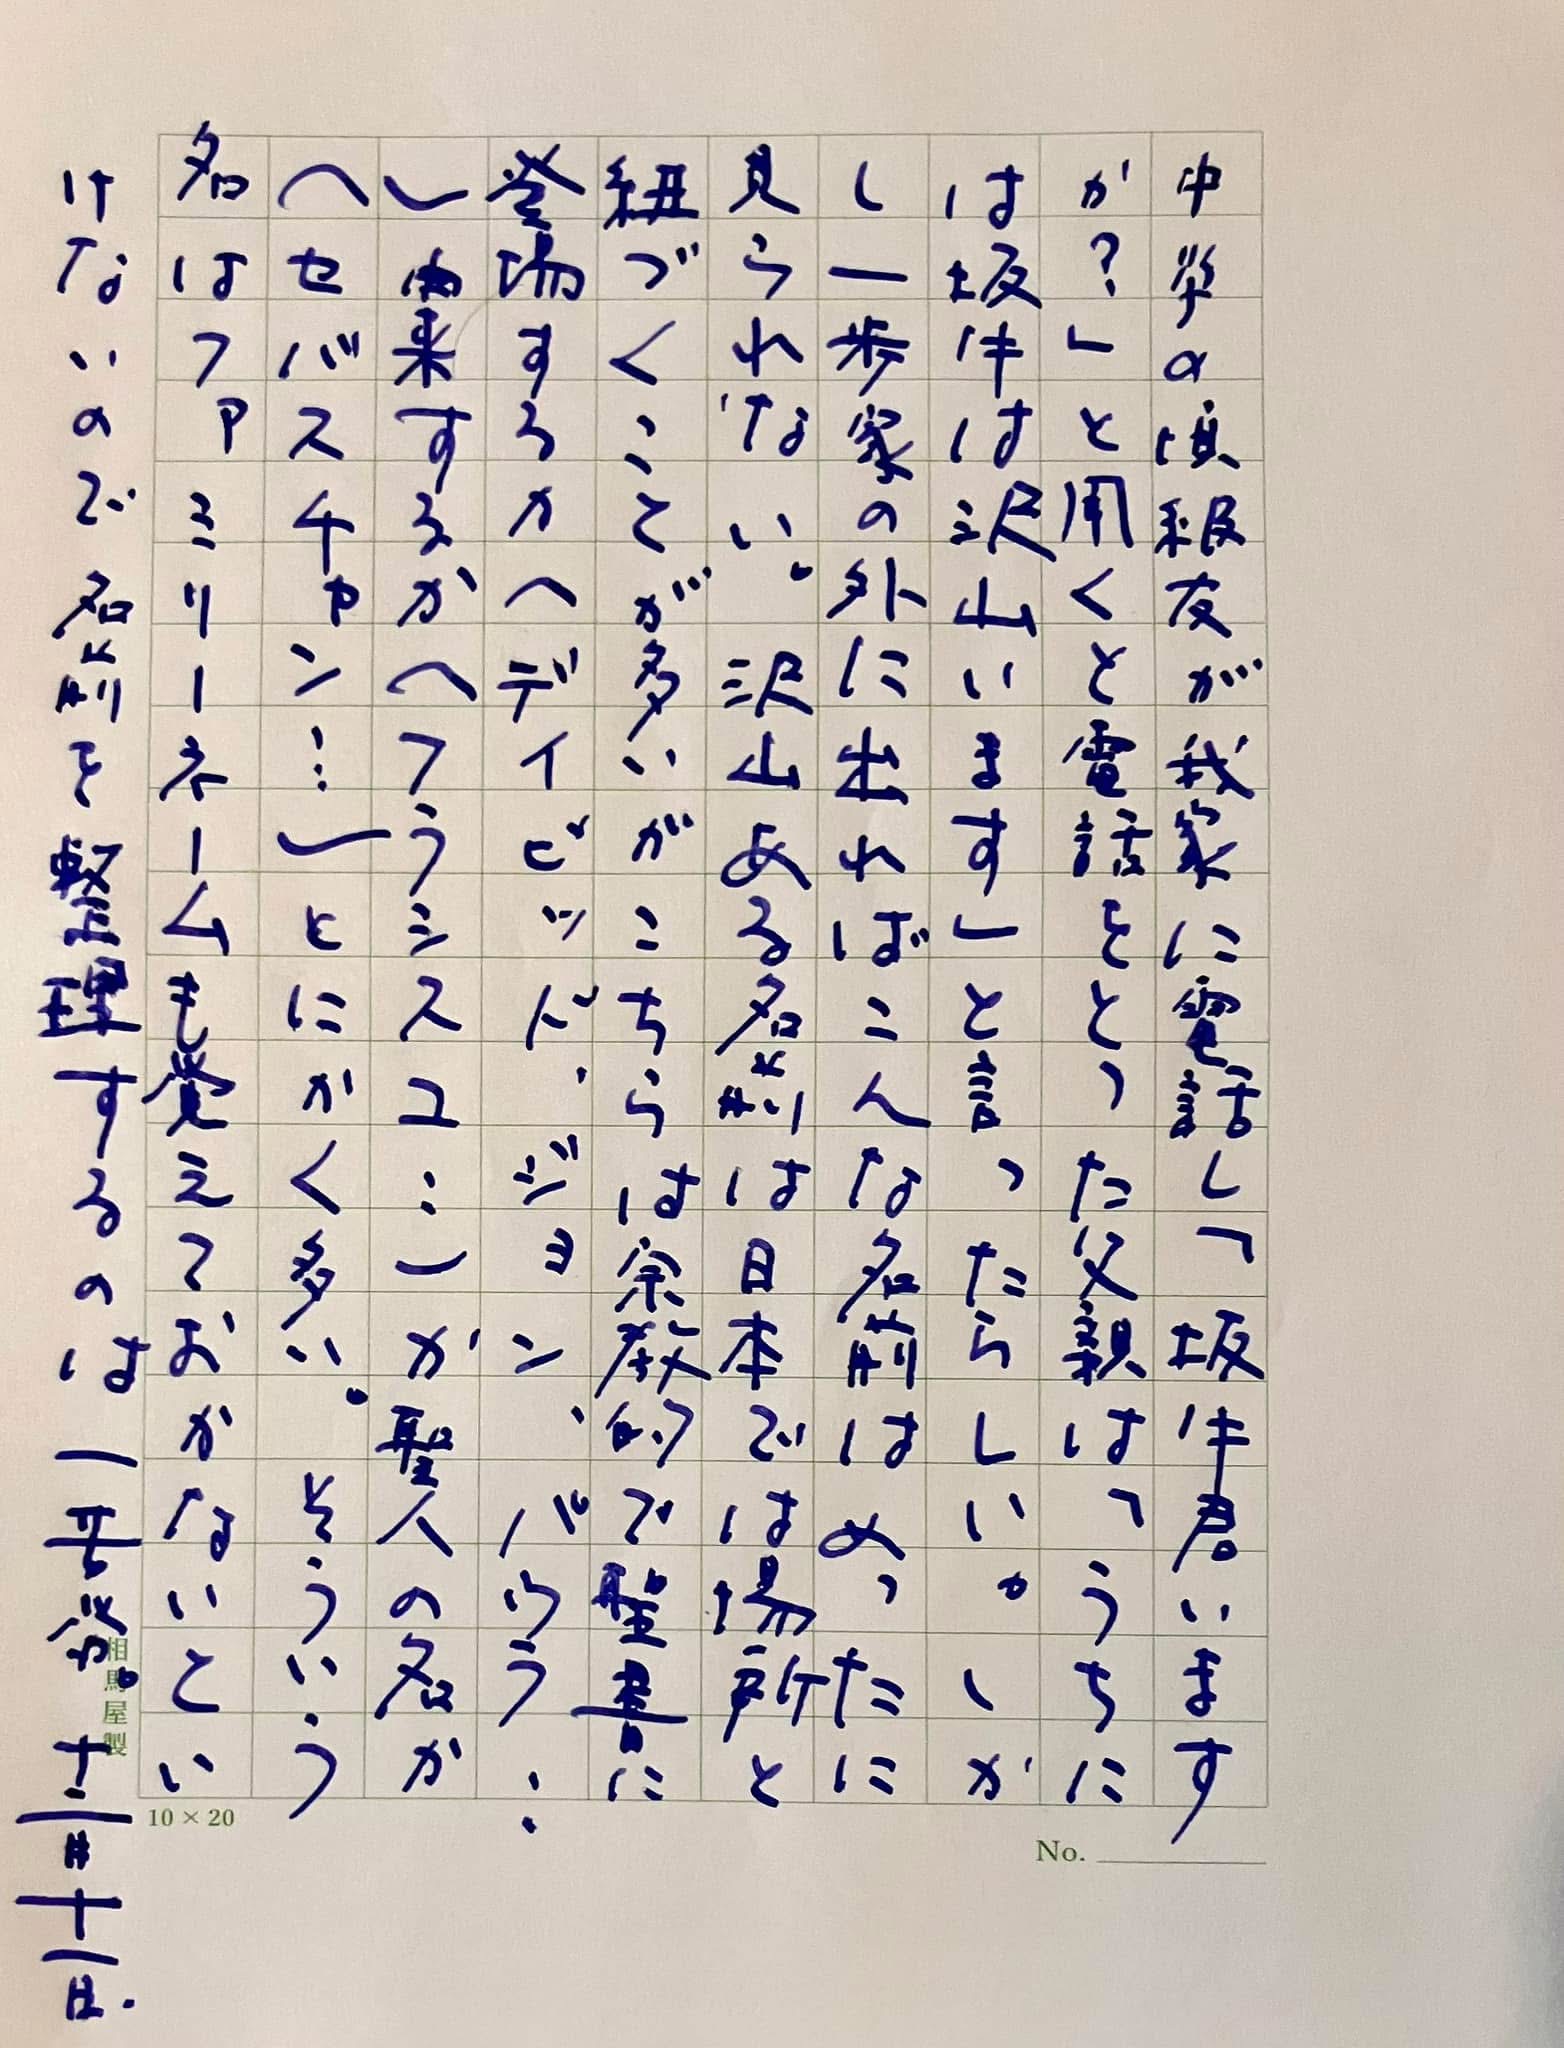 中学の頃級友が我家に電話し「坂井君います
か?」と聞くと電話をとった父親は「うちに
は坂井は沢山います」と言ったらしい。しか
し一歩家の外に出ればこんな名前はめったに
見られない。沢山ある名前は日本では場所と
紐づくことが多いがこちらは宗教的で聖書に
登場するか(デイビッド、ジョン、パウラ…
)由来するか(フランシスコ…)が聖人の名か
(セバスチャン…)とにかく多い。そういう
名はファミリーネームも覚えておかないとい
けないので名前を整理するのは一苦労。十二月十一日.
相馬屋製
10×20
No.